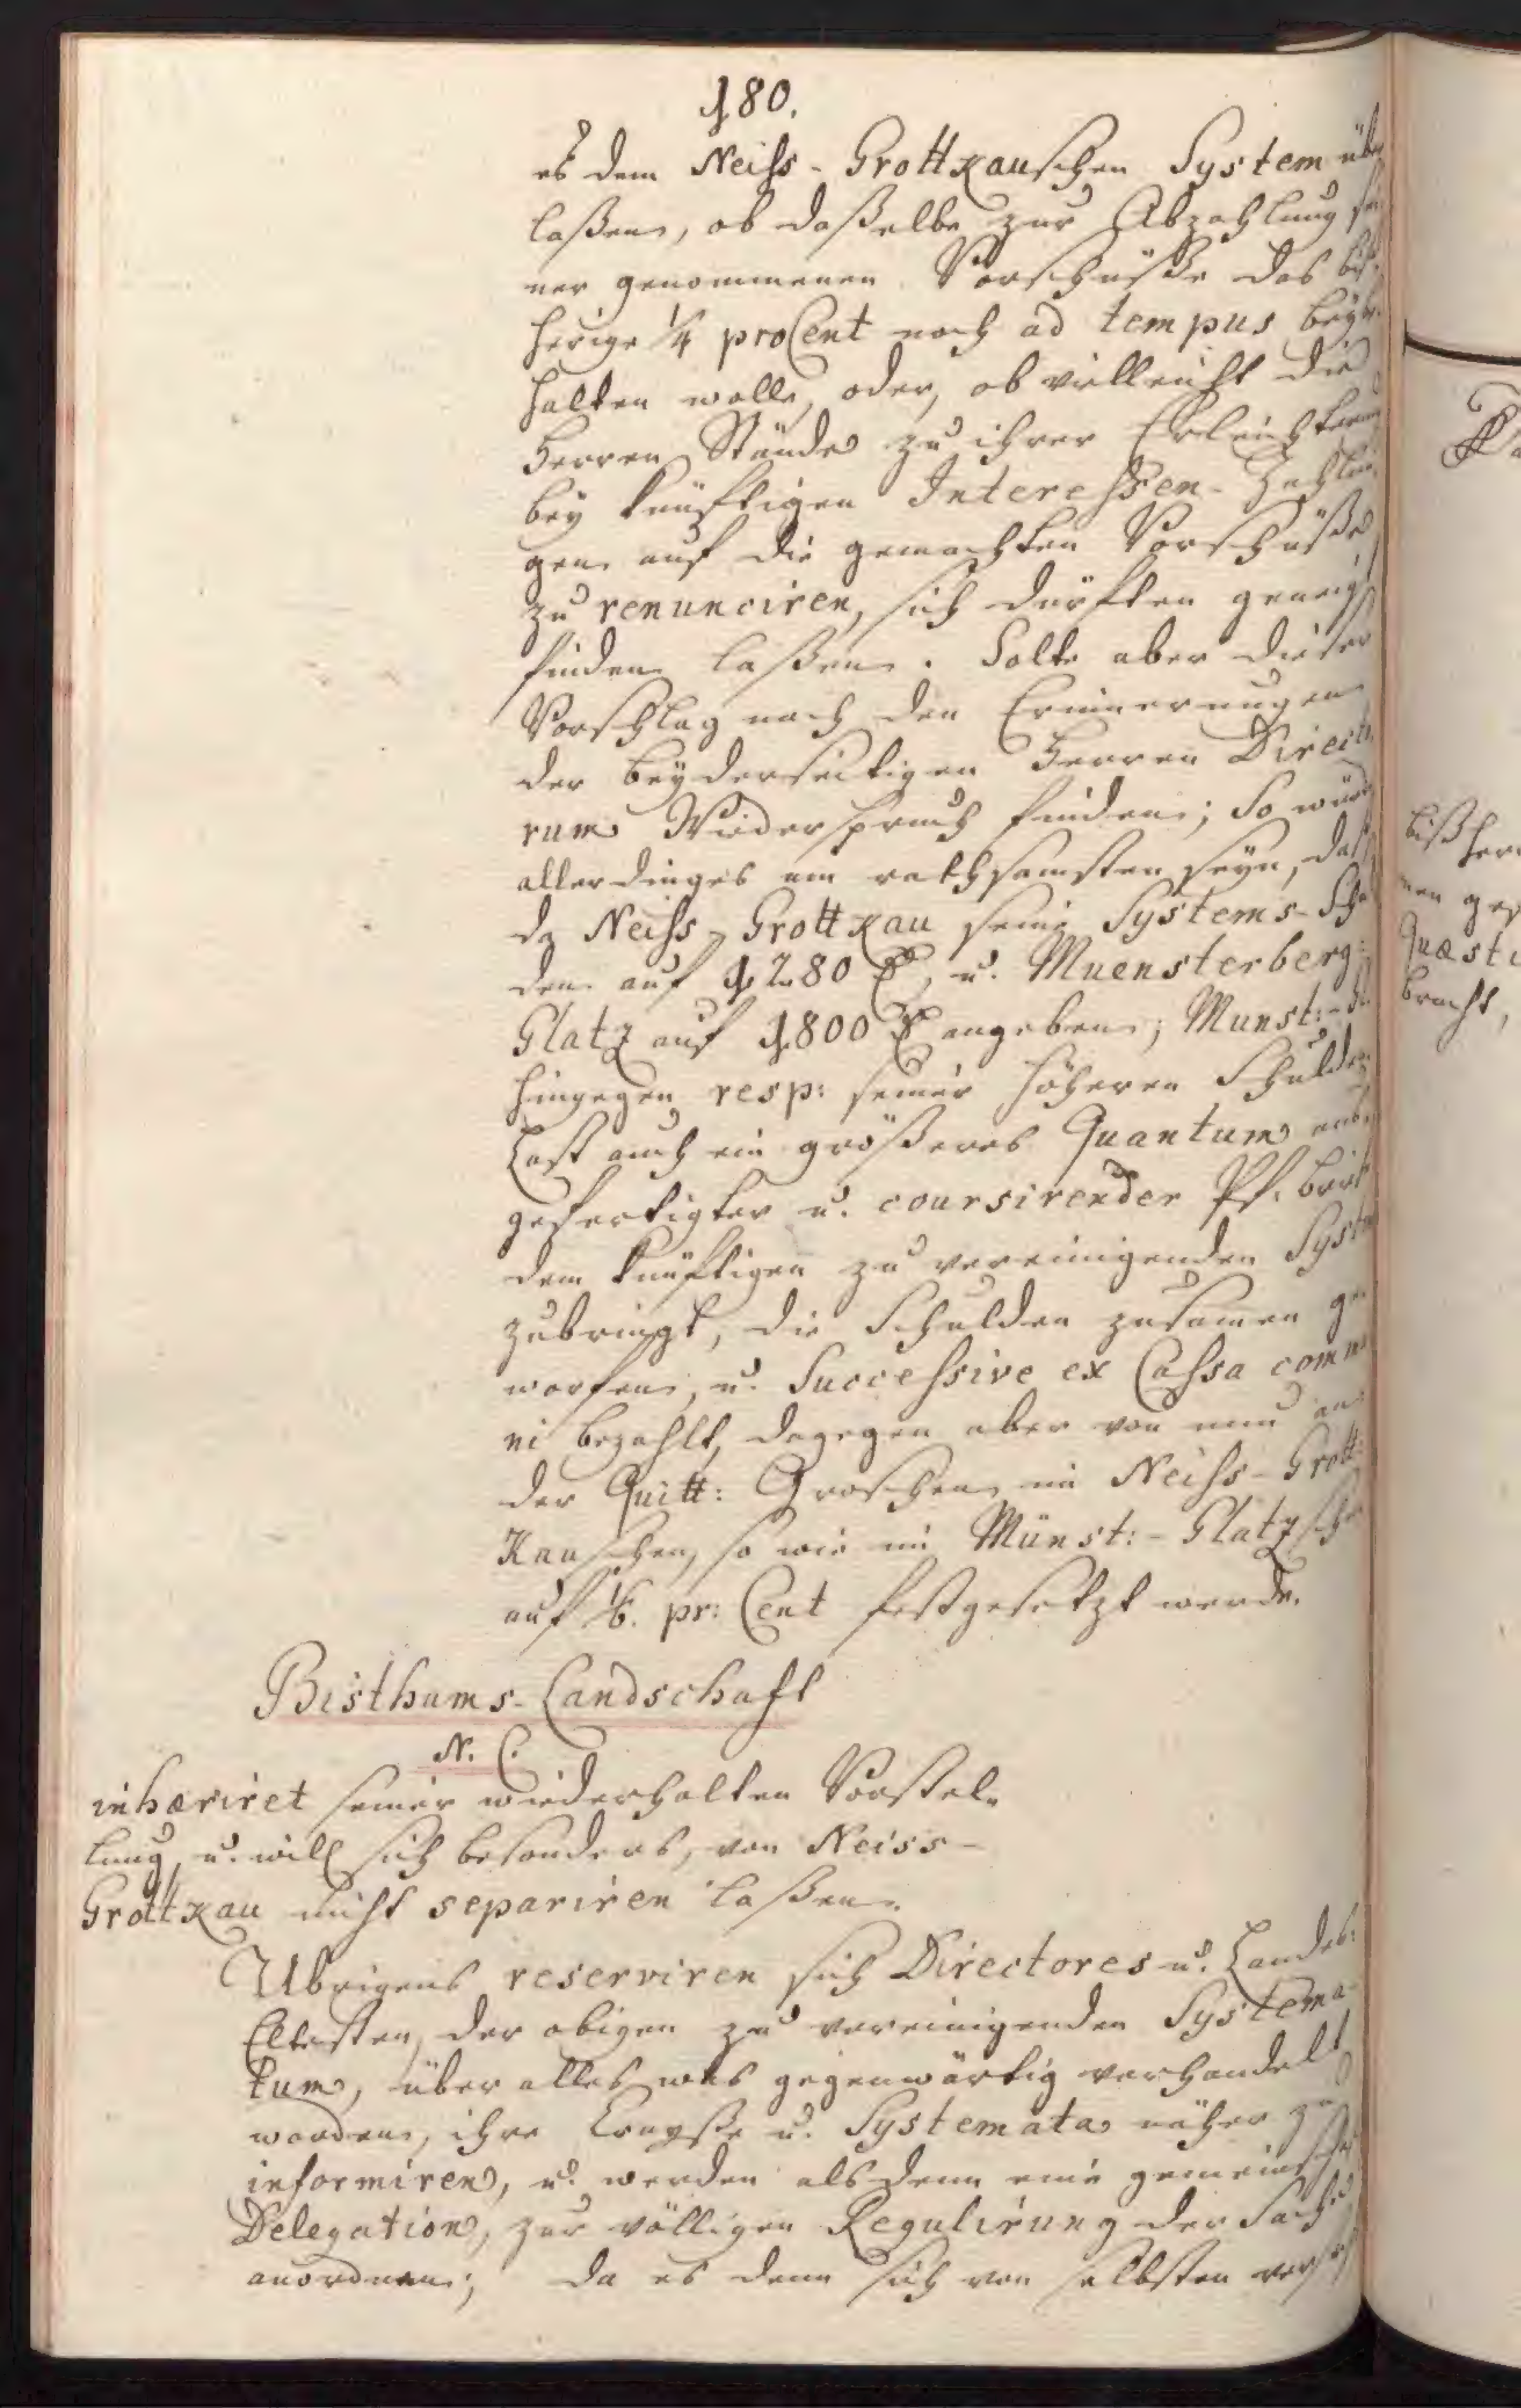 180.
es dem Neiss-Grottkauschen System über
laßen, ob daßelbe zur Abzahlung sei
ner genommenen Vorschüße das biß
herige 1/4 proCent noch ad tempus beybe
halten wolle, oder, ob vielleicht die
Herren Stände zu ihrer Erleichterung
bey künftigen Interessen-Zahlun
gen auf die gemachten Vorschüße
zu renunciren, sich dürften geneigt
finden laßen. Solte aber dieser
Vorschlag nach den Erinnerungen
der beyderseitigen Herren Directo
rum Wiederspruch finden; So würde
allerdinges am rathsamsten seyn, daß
da Neiss-Grottkau seine Systems-Schul
den auf 1280 u. Muensterberg:
Glatz auf 1800 angeben; Munst:-
hingegen resp: seiner höheren Schulden
Last auch ein größeres Quantum aus
gefertigter u. coursirender Pf. brief
dem künftigen zu vereinigenden System
zubringt, die Schulden zusamen ge
worfen, u. Successive ex Cassa commu
ni bezahlt, dagegen aber von nun an
der Quitt: Groschen im Neiss-Grott
Kauschen, so wie im Münst:-Glatzschen
auf 1/6. pr: Cent festgesetzt werde.
Bisthums-Landschaft
N. C.
inhæriret seiner wiederholten Vorstel
lung, u. will sich besonders, von Neiss-
Grottkau nicht separiren laßen.
Ubrigens reserviren sich Directores u. Landes:
Eltesten, der obigen zu vereinigenden Systema
tum, über alles was gegenwärtig verhandelt
worden, ihre Crayße u. Systemata näher zu
informiren, u. werden alsdenn eine gemeinschaftl
Delegation, zur völligen Regulirung der Sache
anordnen; da es denn sich von selbsten versteh
bißher
men ges
Quæsti
bracht,